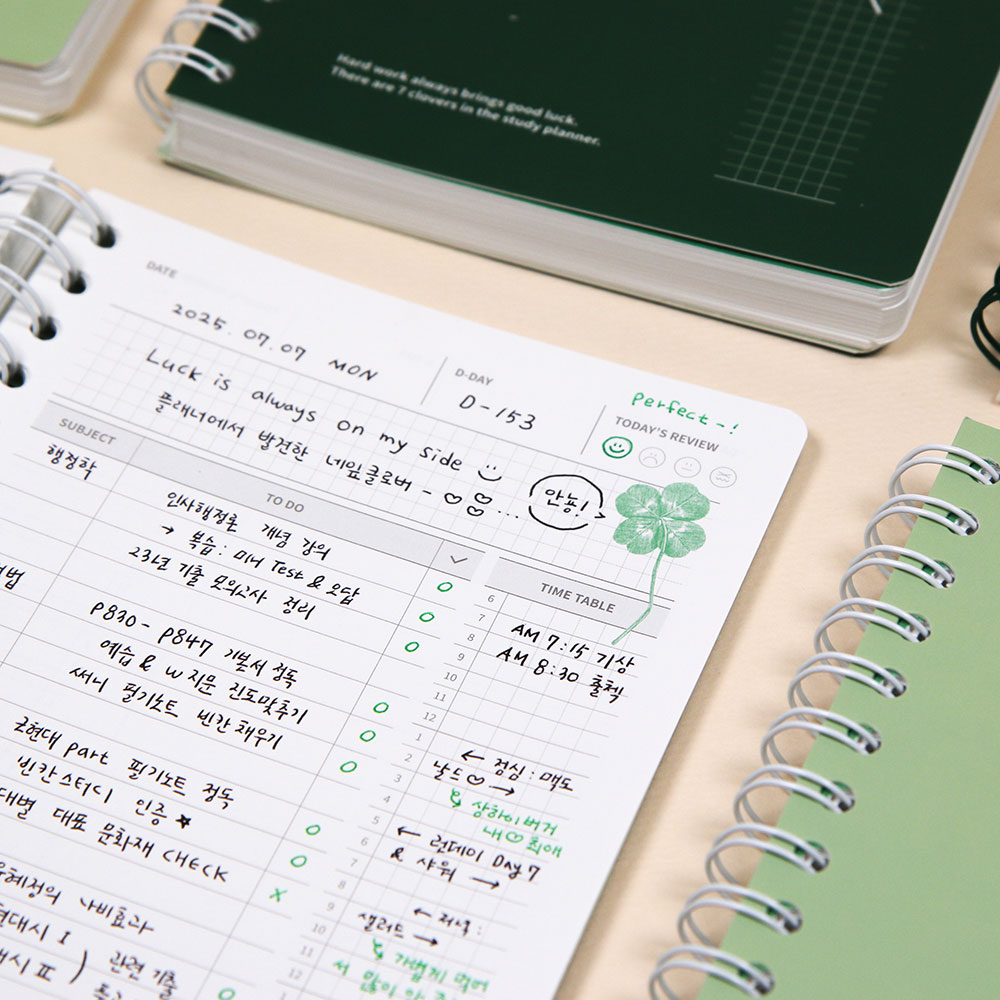 Hard work always brings good luck.
There are 7 clovers in the study planner.
DATE
2025. 07. 07 MON
D-DAY
D-153
perfect-!
TODAY'S REVIEW
Luck is always on my side
플래너에서 발견한 네잎클로버 - ♡♡♡♡...
안뇽!
SUBJECT
TO DO
TIME TABLE
행정학
인사행정론 개념 강의
→ 복습 : 미니 Test & 오답
23년 기출 모의고사 정리
법
P830 - P847 기본서 정독
예습 & W지문 진도맞추기
써니 필기노트 빈칸채우기
근현대 part 필기노트 정독
빈칸스터디 인증 ★
대별 대표 문화재 CHECK
X
혜정의 나비효과
현대시 I
시 II ) 관련 기출
6
7
8
9
10
11
12
1
2
3
4
5
6
7
8
9
10
11
12
AM 7:15 기상
AM 8:30 출첵
← 점심 : 맥도
날드♡ →
상하이버거
내♡최애
← 런데이 Day 7
& 샤워 →
← 저녁 :
샐러드 →
가볍게 먹어
서